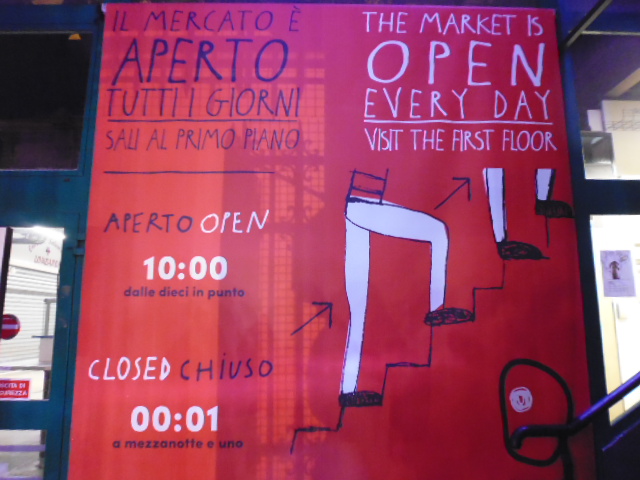 IL MERCATO È
APERTO
TUTTI I GIORNI
SALI AL PRIMO PIANO
THE MARKET IS
OPEN
EVERY DAY
VISIT THE FIRST FLOOR
APERTO OPEN
10:00
dalle dieci in punto
CLOSED CHIUSO
00:01
a mezzanotte e uno
USCITA DI
SICUREZZA